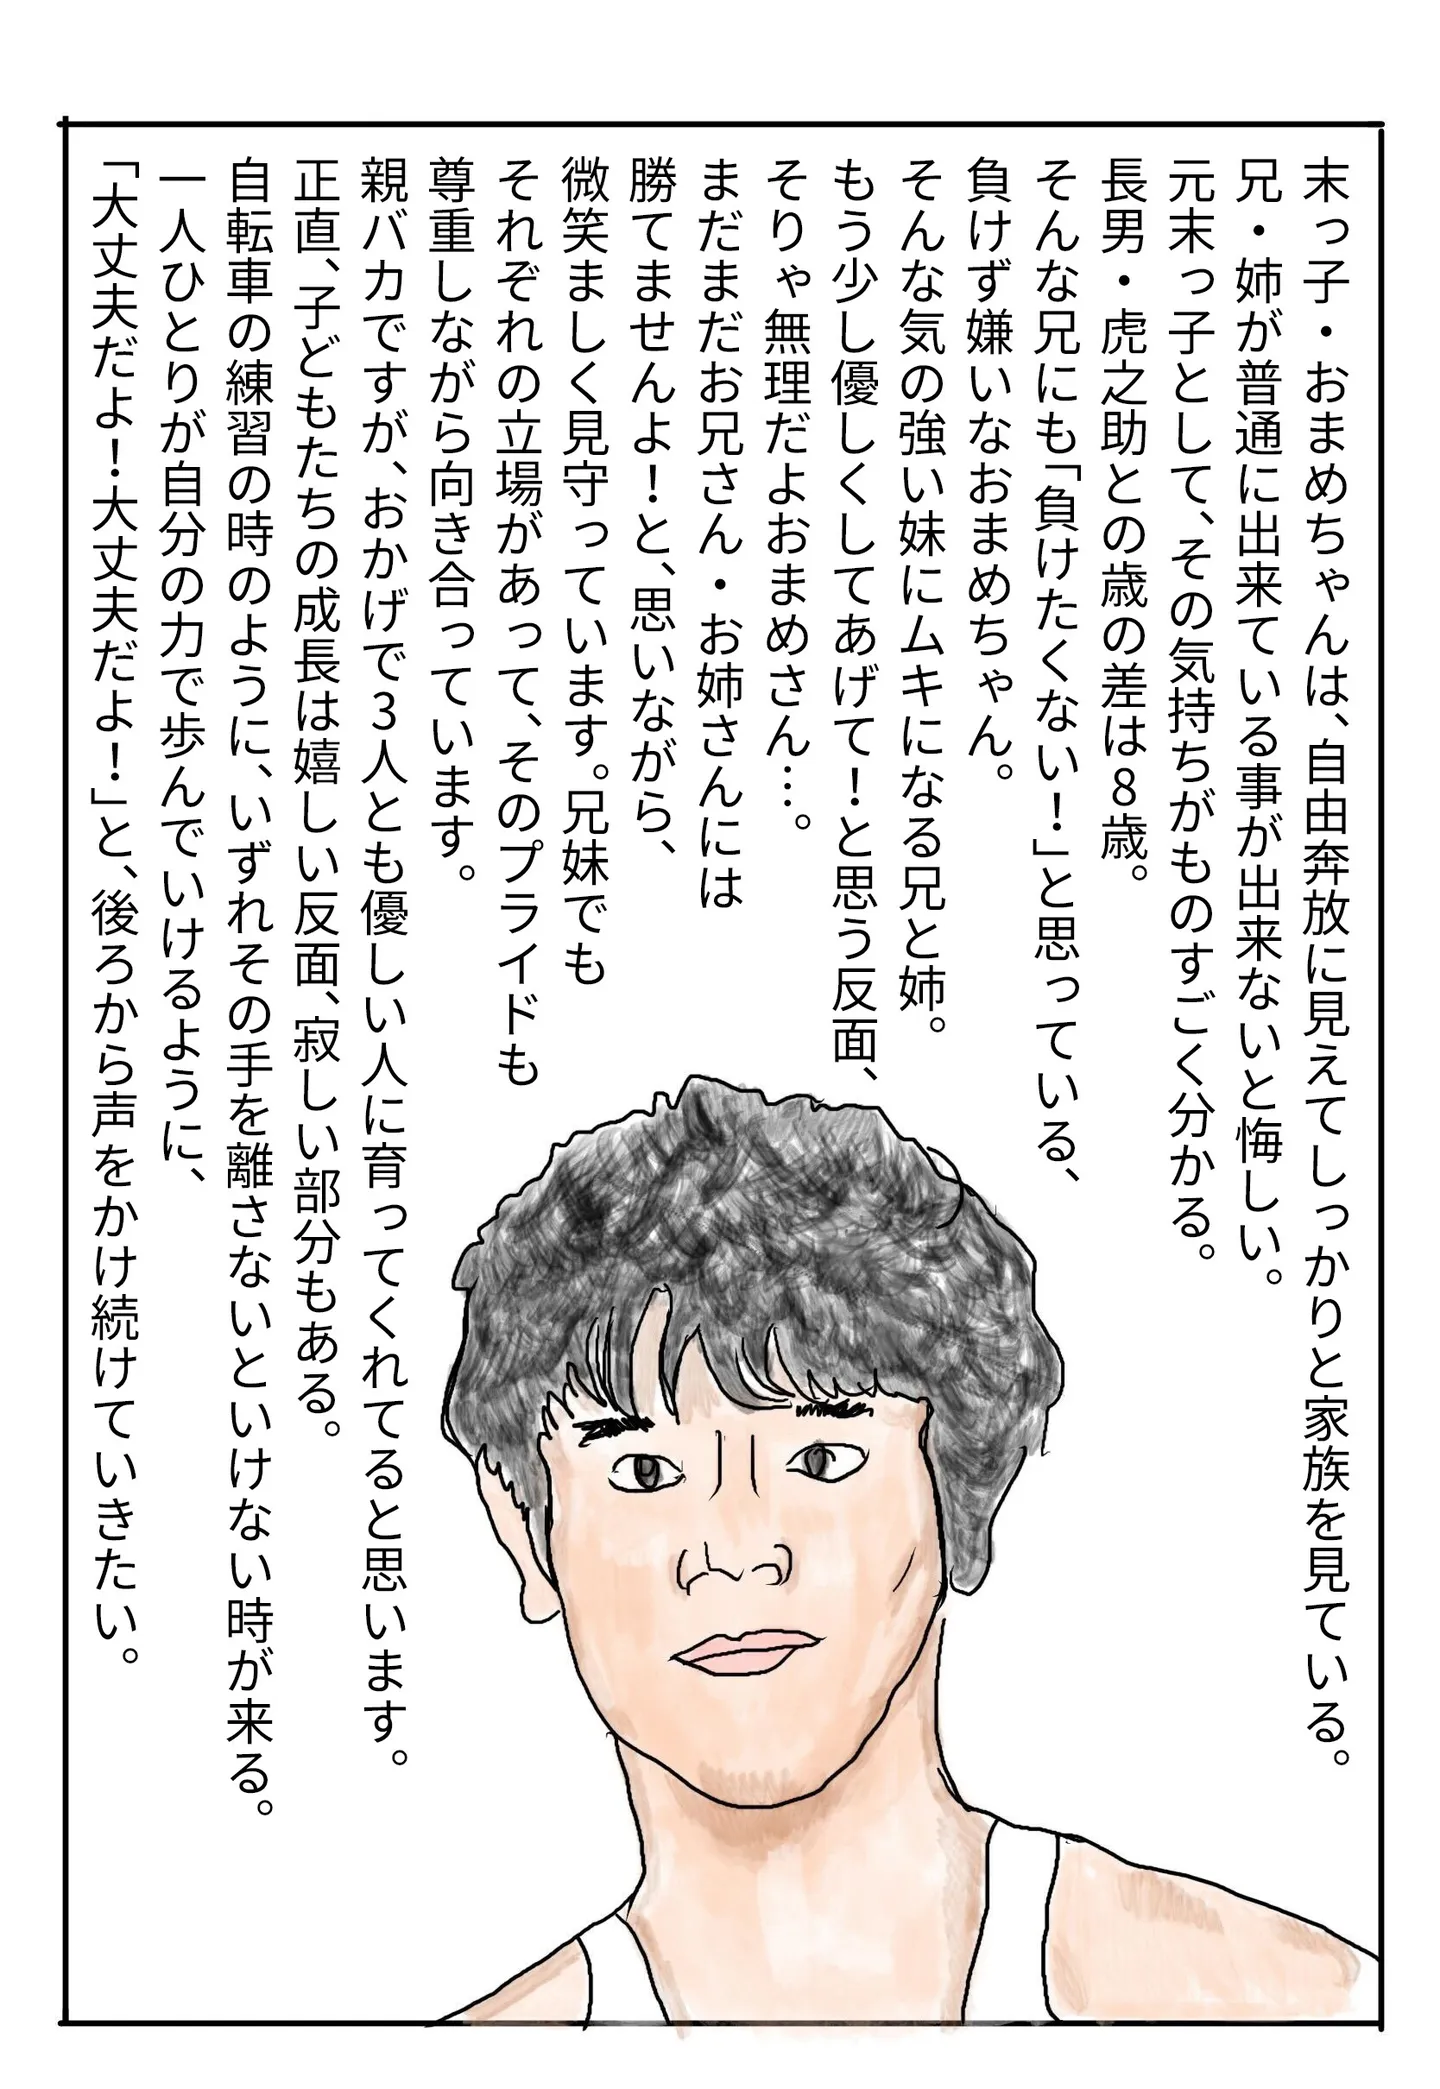 末っ子・おまめちゃんは、自由奔放に見えてしっかりと家族を見ている。
兄・姉が普通に出来ている事が出来ないと悔しい。
元末っ子として、その気持ちがものすごく分かる。
長男・虎之助との歳の差は8歳。
そんな兄にも「負けたくない!」と思っている、
負けず嫌いなおまめちゃん。
そんな気の強い妹にムキになる兄と姉。
もう少し優しくしてあげて!と思う反面、
そりゃ無理だよおまめさん…。
まだまだお兄さん・お姉さんには
勝てませんよ!と、思いながら、
微笑ましく見守っています。兄妹でも
それぞれの立場があって、そのプライドも
尊重しながら向き合っています。
親バカですが、おかげで3人とも優しい人に育ってくれてると思います。
正直、子どもたちの成長は嬉しい反面、寂しい部分もある。
自転車の練習の時のように、いずれその手を離さないといけない時が来る。
一人ひとりが自分の力で歩んでいけるように、
「大丈夫だよ!大丈夫だよ!」と、後ろから声をかけ続けていきたい。